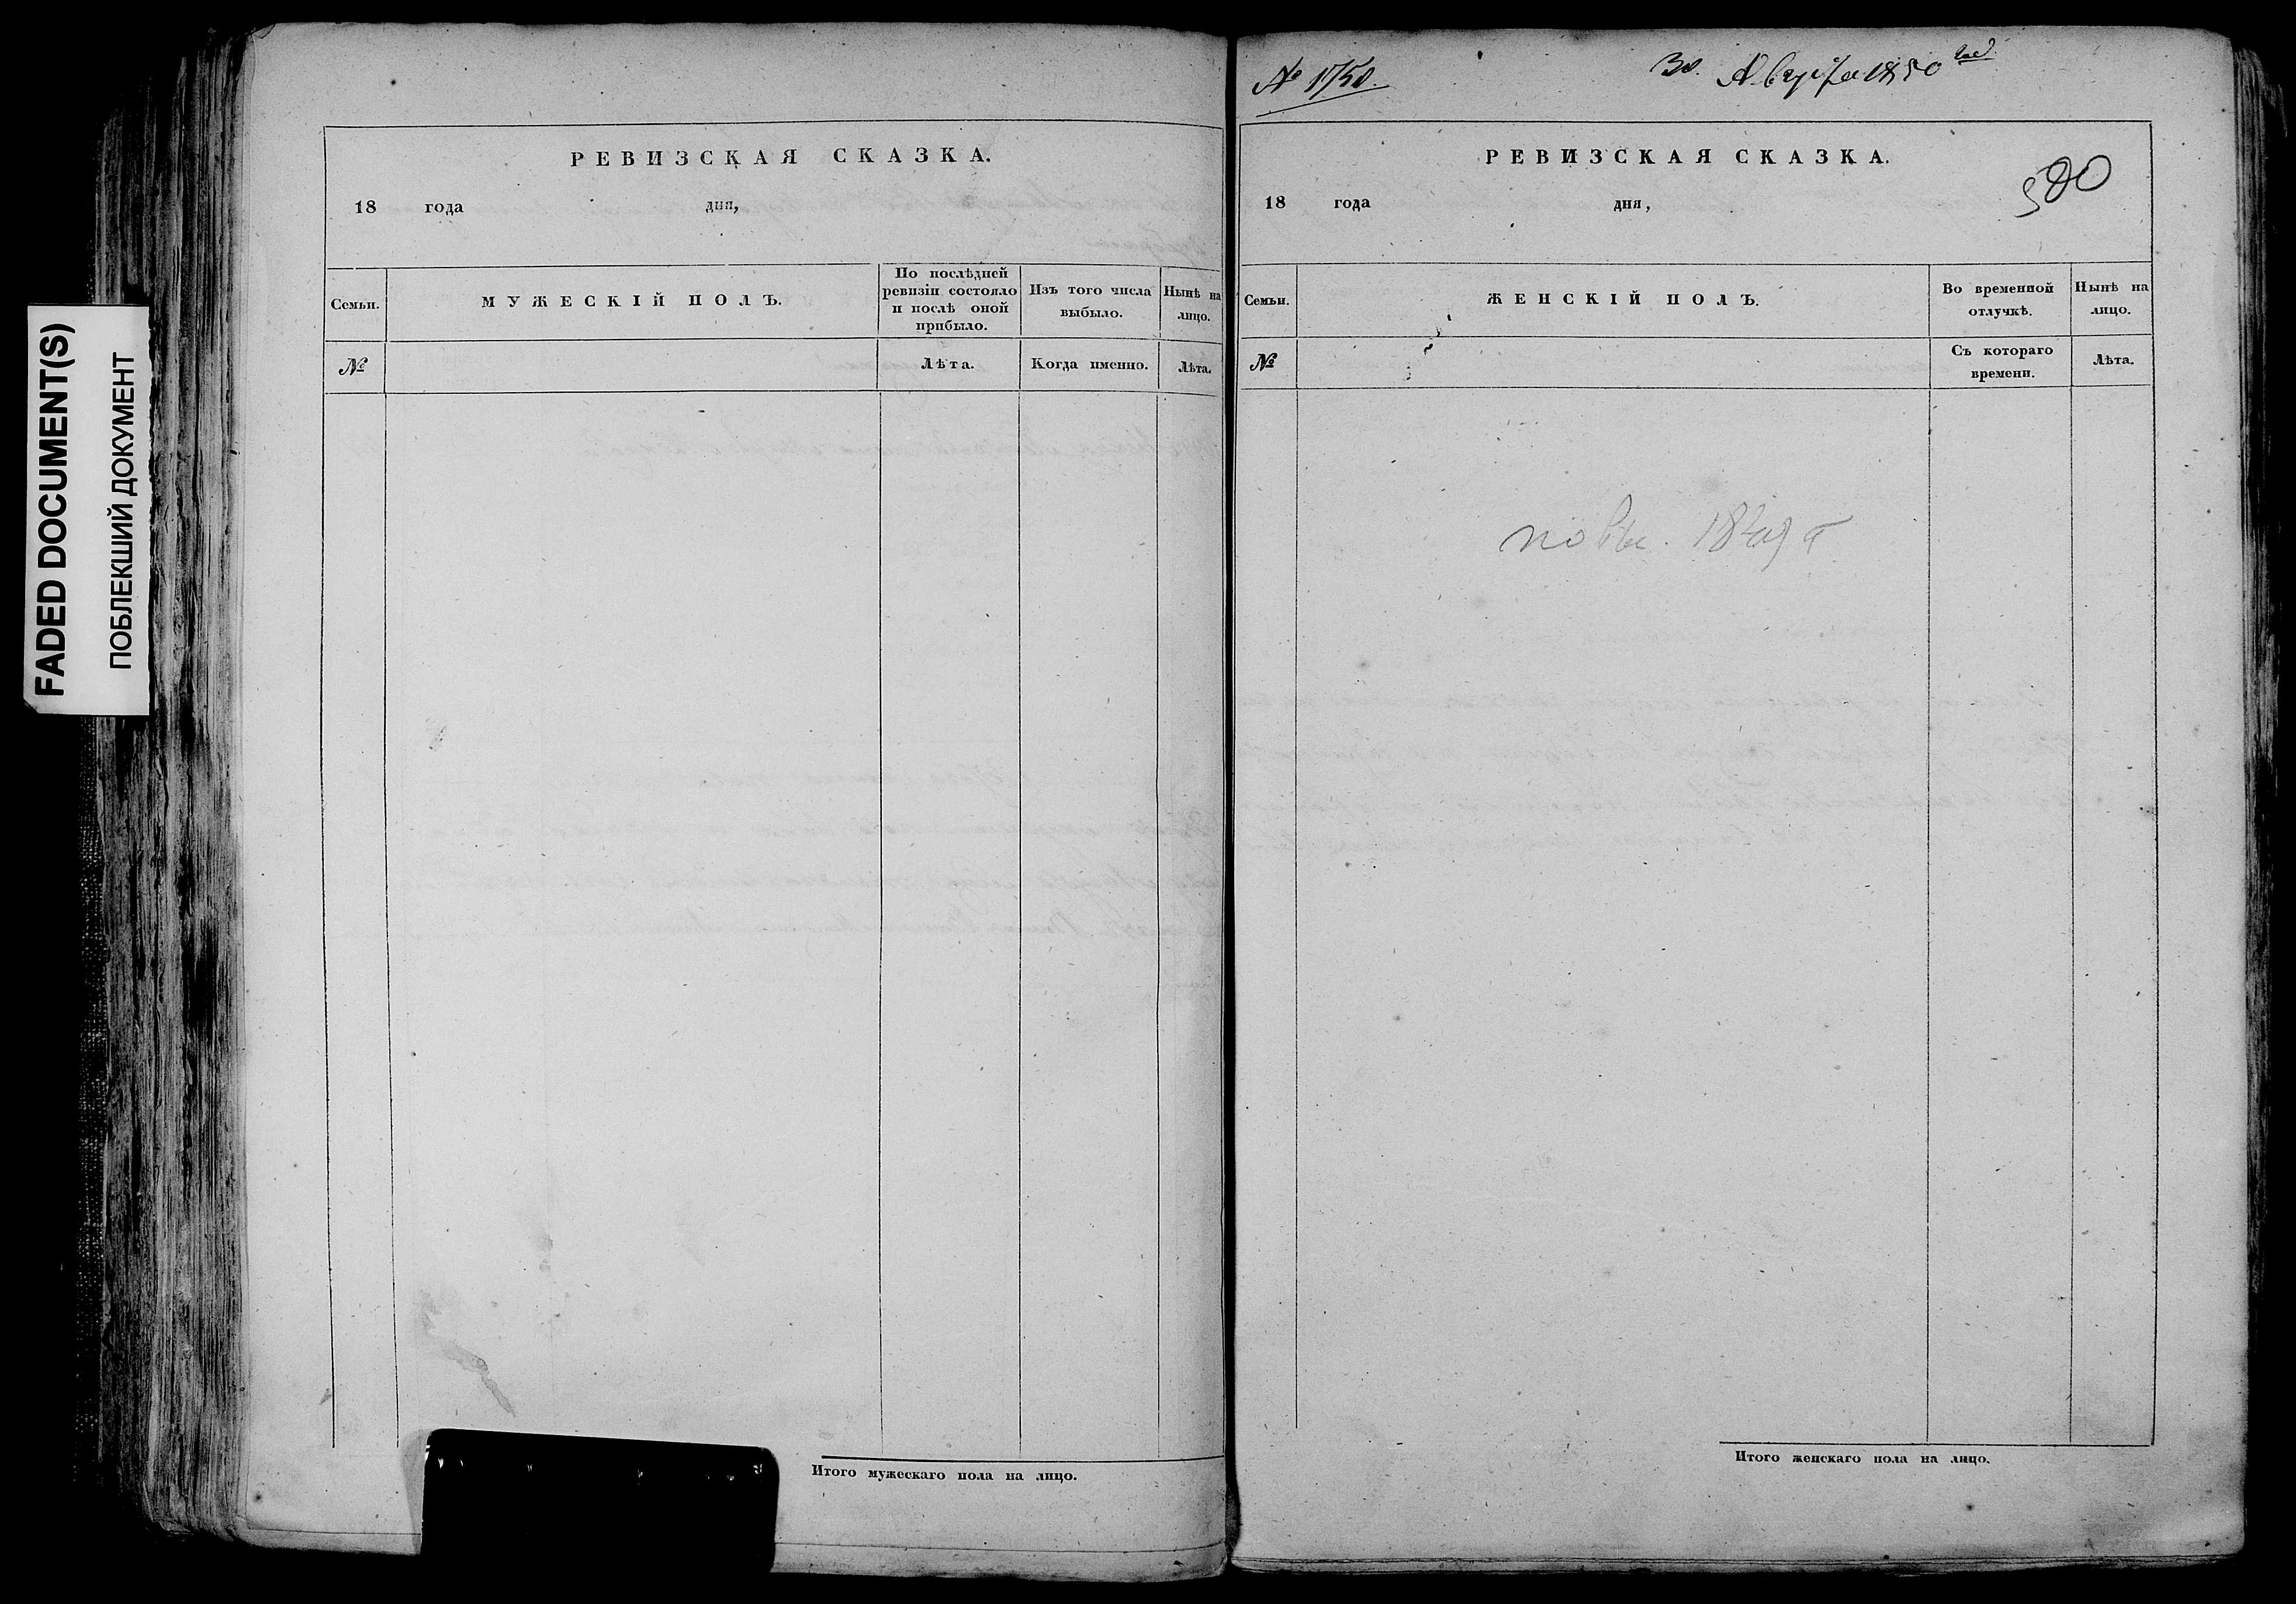 FADED DOCUMENT(S)
ПОБЛЕКШИЙ ДОКУМЕНТ
РЕВИЗСКАЯ СКАЗКА.
18 года дня,
Семьи.
МУЖЕСКІЙ ПОЛЪ.
По послѣдней
ревизіи состояло
и послѣ оной
прибыло.
Изъ того числа
выбыло.
Нынѣ на
лицо.
№
Лѣта.
Когда именно.
Лѣта.
Итого мужескаго пола на лицо.
№ 1750.
30. Августа 1850 год
РЕВИЗСКАЯ СКАЗКА.
500
18 года дня,
Семьи.
ЖЕНСКІЙ ПОЛЪ.
Во временной
отлучкѣ.
Нынѣ на
лицо.
№
Съ котораго
времени.
Лѣта.
Итого женскаго пола на лицо.